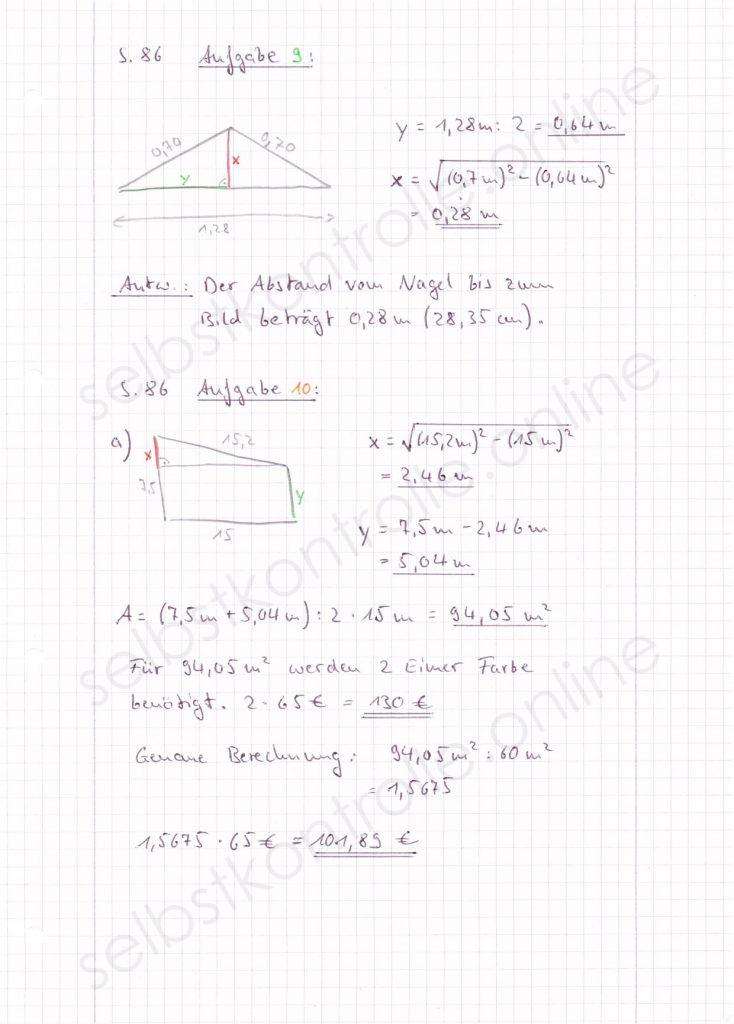 S. 86 Aufgabe 9:
0,70
0,70
x
y
1,28
y = 1,28m : 2 = 0,64 m
x = √(0,7m)² - (0,64m)²
= 0,28 m
Antw.: Der Abstand vom Nagel bis zum
Bild beträgt 0,28m (28,35 cm).
S. 86 Aufgabe 10:
a)
x
15,2
7,5
y
15
x = √(15,2m)² - (15m)²
= 2,46 m
y = 7,5m - 2,46m
= 5,04 m
A = (7,5m + 5,04m) : 2 · 15m = 94,05 m²
Für 94,05m² werden 2 Eimer Farbe
benötigt. 2 · 65€ = 130 €
Genaue Berechnung: 94,05m² : 60m²
= 1,5675
1,5675 · 65€ = 101,89 €
selbstkontrolle.online
selbstkontrolle.online
selbstkontrolle.online